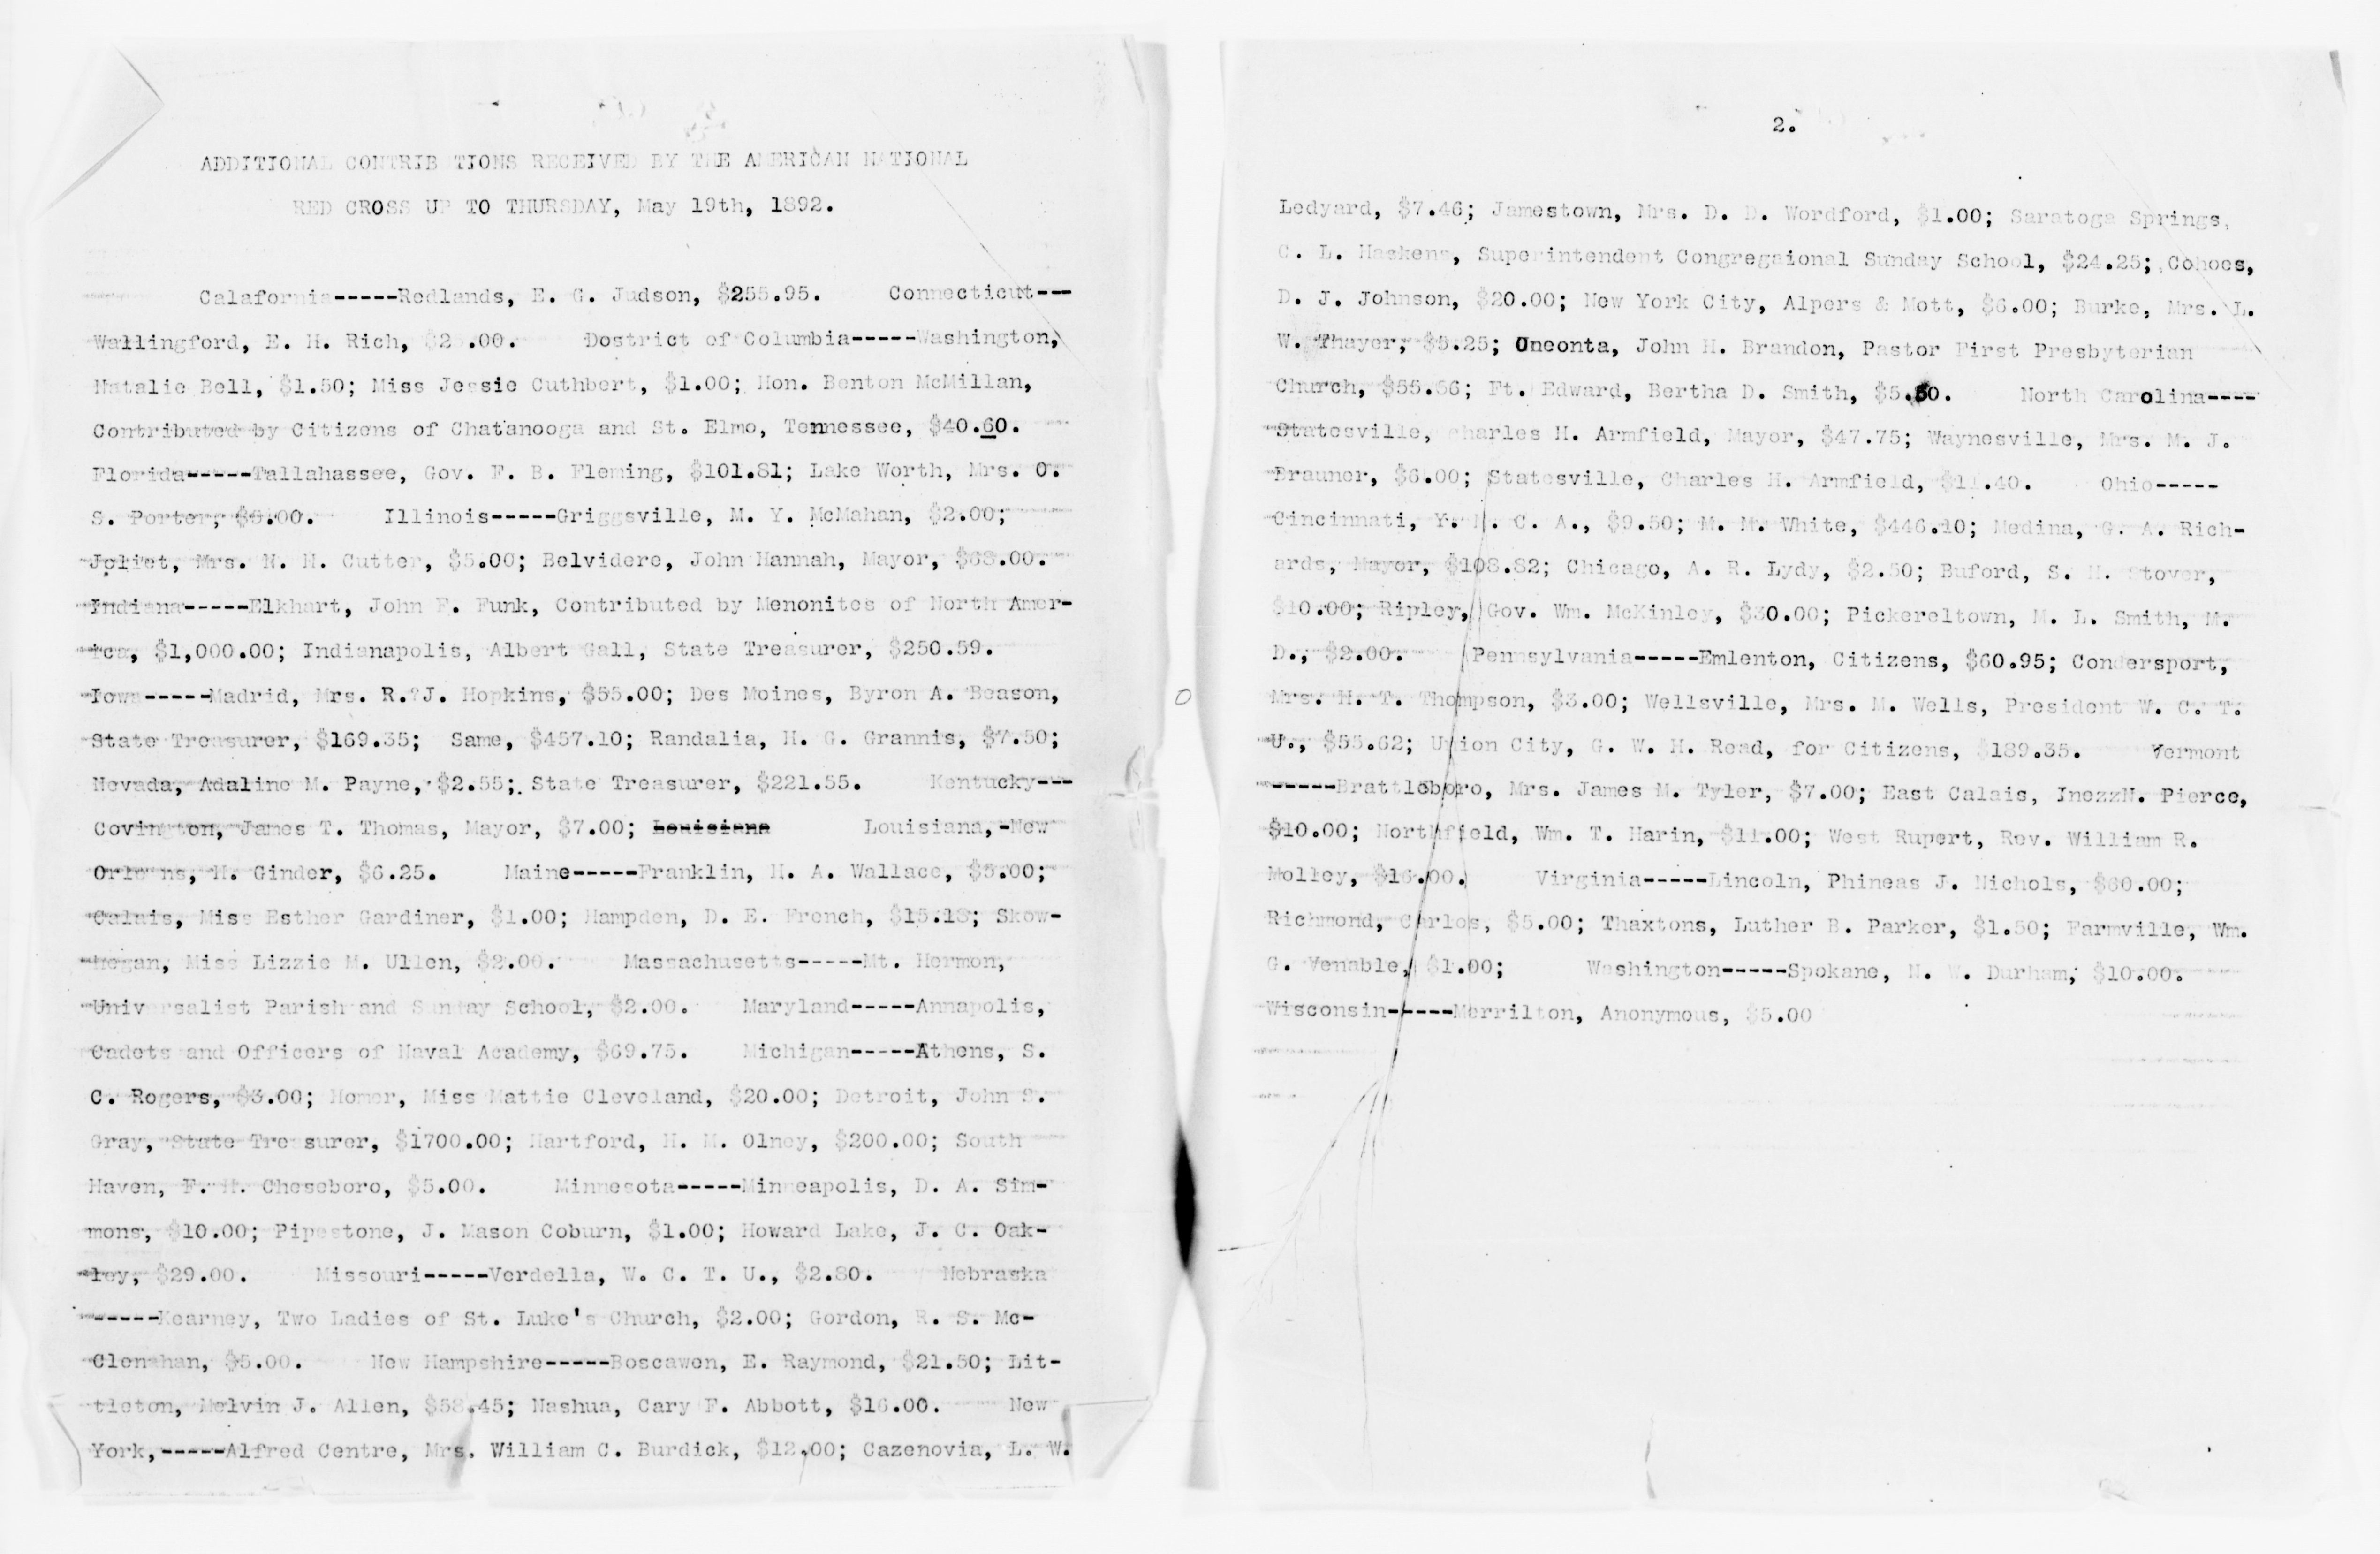 ADDITIONAL CONTRIB TIONS RECEIVED BY THE AMERICAN NATIONAL
RED CROSS UP TO THURSDAY, May 19th, 1892.
Calafornia-----Redlands, E. G. Judson, $255.95. Connecticut---
Wallingford, E. H. Rich, $2 .00. Dostrict of Columbia-----Washington,
Natalie Bell, $1.50; Miss Jessie Cuthbert, $1.00; Hon. Benton McMillan,
Contributed by Citizens of Chatanooga and St. Elmo, Tennessee, $40.60.
Florida-----Tallahassee, Gov. F. B. Fleming, $101.81; Lake Worth, Mrs. O.
S. Porter, $5.00. Illinois-----Griggsville, M. Y. McMahan, $2.00;
Joliet, Mrs. N. H. Cutter, $5.00; Belvidere, John Hannah, Mayor, $68.00.
Indiana-----Elkhart, John F. Funk, Contributed by Menonites of North Amer-
ica, $1,000.00; Indianapolis, Albert Gall, State Treasurer, $250.59.
Iowa-----Madrid, Mrs. R.?J. Hopkins, $55.00; Des Moines, Byron A. Beason,
State Treasurer, $169.35; Same, $457.10; Randalia, H. G. Grannis, $7.50;
Nevada, Adaline M. Payne, $2.55; State Treasurer, $221.55. Kentucky---
Covington, James T. Thomas, Mayor, $7.00; Louisiana Louisiana,-New
Orleans, H. Ginder, $6.25. Maine-----Franklin, H. A. Wallace, $5.00;
Calais, Miss Esther Gardiner, $1.00; Hampden, D. E. French, $15.18; Skow-
hegan, Miss Lizzie M. Ullen, $2.00. Massachusetts-----Mt. Hermon,
Universalist Parish and Sunday School, $2.00. Maryland-----Annapolis,
Cadets and Officers of Naval Academy, $69.75. Michigan-----Athens, S.
C. Rogers, $3.00; Homer, Miss Mattie Cleveland, $20.00; Detroit, John S.
Gray, State Treasurer, $1700.00; Hartford, H. M. Olney, $200.00; South
Haven, F. H. Cheseboro, $5.00. Minnesota-----Minneapolis, D. A. Sim-
mons, $10.00; Pipestone, J. Mason Coburn, $1.00; Howard Lake, J. C. Oak-
ley, $29.00. Missouri-----Verdella, W. C. T. U., $2.80. Nebraska
-----Kearney, Two Ladies of St. Luke's Church, $2.00; Gordon, R. S. Mc-
Clenahan, $5.00. New Hampshire-----Boscawen, E. Raymond, $21.50; Lit-
tleton, Melvin J. Allen, $58.45; Nashua, Cary F. Abbott, $16.00. New
York,-----Alfred Centre, Mrs. William C. Burdick, $12.00; Cazenovia, L. W.
2.
Ledyard, $7.46; Jamestown, Mrs. D. D. Wordford, $1.00; Saratoga Springs,
C. L. Haskens, Superintendent Congregaional Sunday School, $24.25; Cohoes,
D. J. Johnson, $20.00; New York City, Alpers & Mott, $6.00; Burke, Mrs. L.
W. Thayer, $5.25; Oneonta, John H. Brandon, Pastor First Presbyterian
Church, $55.66; Ft. Edward, Bertha D. Smith, $5.50. North Carolina----
Statesville, Charles H. Armfield, Mayor, $47.75; Waynesville, Mrs. M. J.
Brauner, $6.00; Statesville, Charles H. Armfield, $11.40. Ohio-----
Cincinnati, Y. M. C. A., $9.50; M. M. White, $446.10; Medina, G. A. Rich-
ards, Mayor, $108.82; Chicago, A. R. Lydy, $2.50; Buford, S. H. Stover,
$10.00; Ripley, Gov. Wm. McKinley, $30.00; Pickereltown, M. L. Smith, M.
D., $2.00. Pennsylvania-----Emlenton, Citizens, $60.95; Condersport,
Mrs. H. T. Thompson, $3.00; Wellsville, Mrs. M. Wells, President W. C. T.
U., $55.62; Union City, G. W. H. Read, for Citizens, $189.35. Vermont
-----Brattleboro, Mrs. James M. Tyler, $7.00; East Calais, InezzN. Pierce,
$10.00; Northfield, Wm. T. Harin, $11.00; West Rupert, Rev. William R.
Molley, $16.00. Virginia-----Lincoln, Phineas J. Nichols, $60.00;
Richmond, Carlos, $5.00; Thaxtons, Luther B. Parker, $1.50; Farmville, Wm.
G. Venable, $1.00; Washington-----Spokane, N. W. Durham, $10.00.
Wisconsin-----Merrilton, Anonymous, $5.00